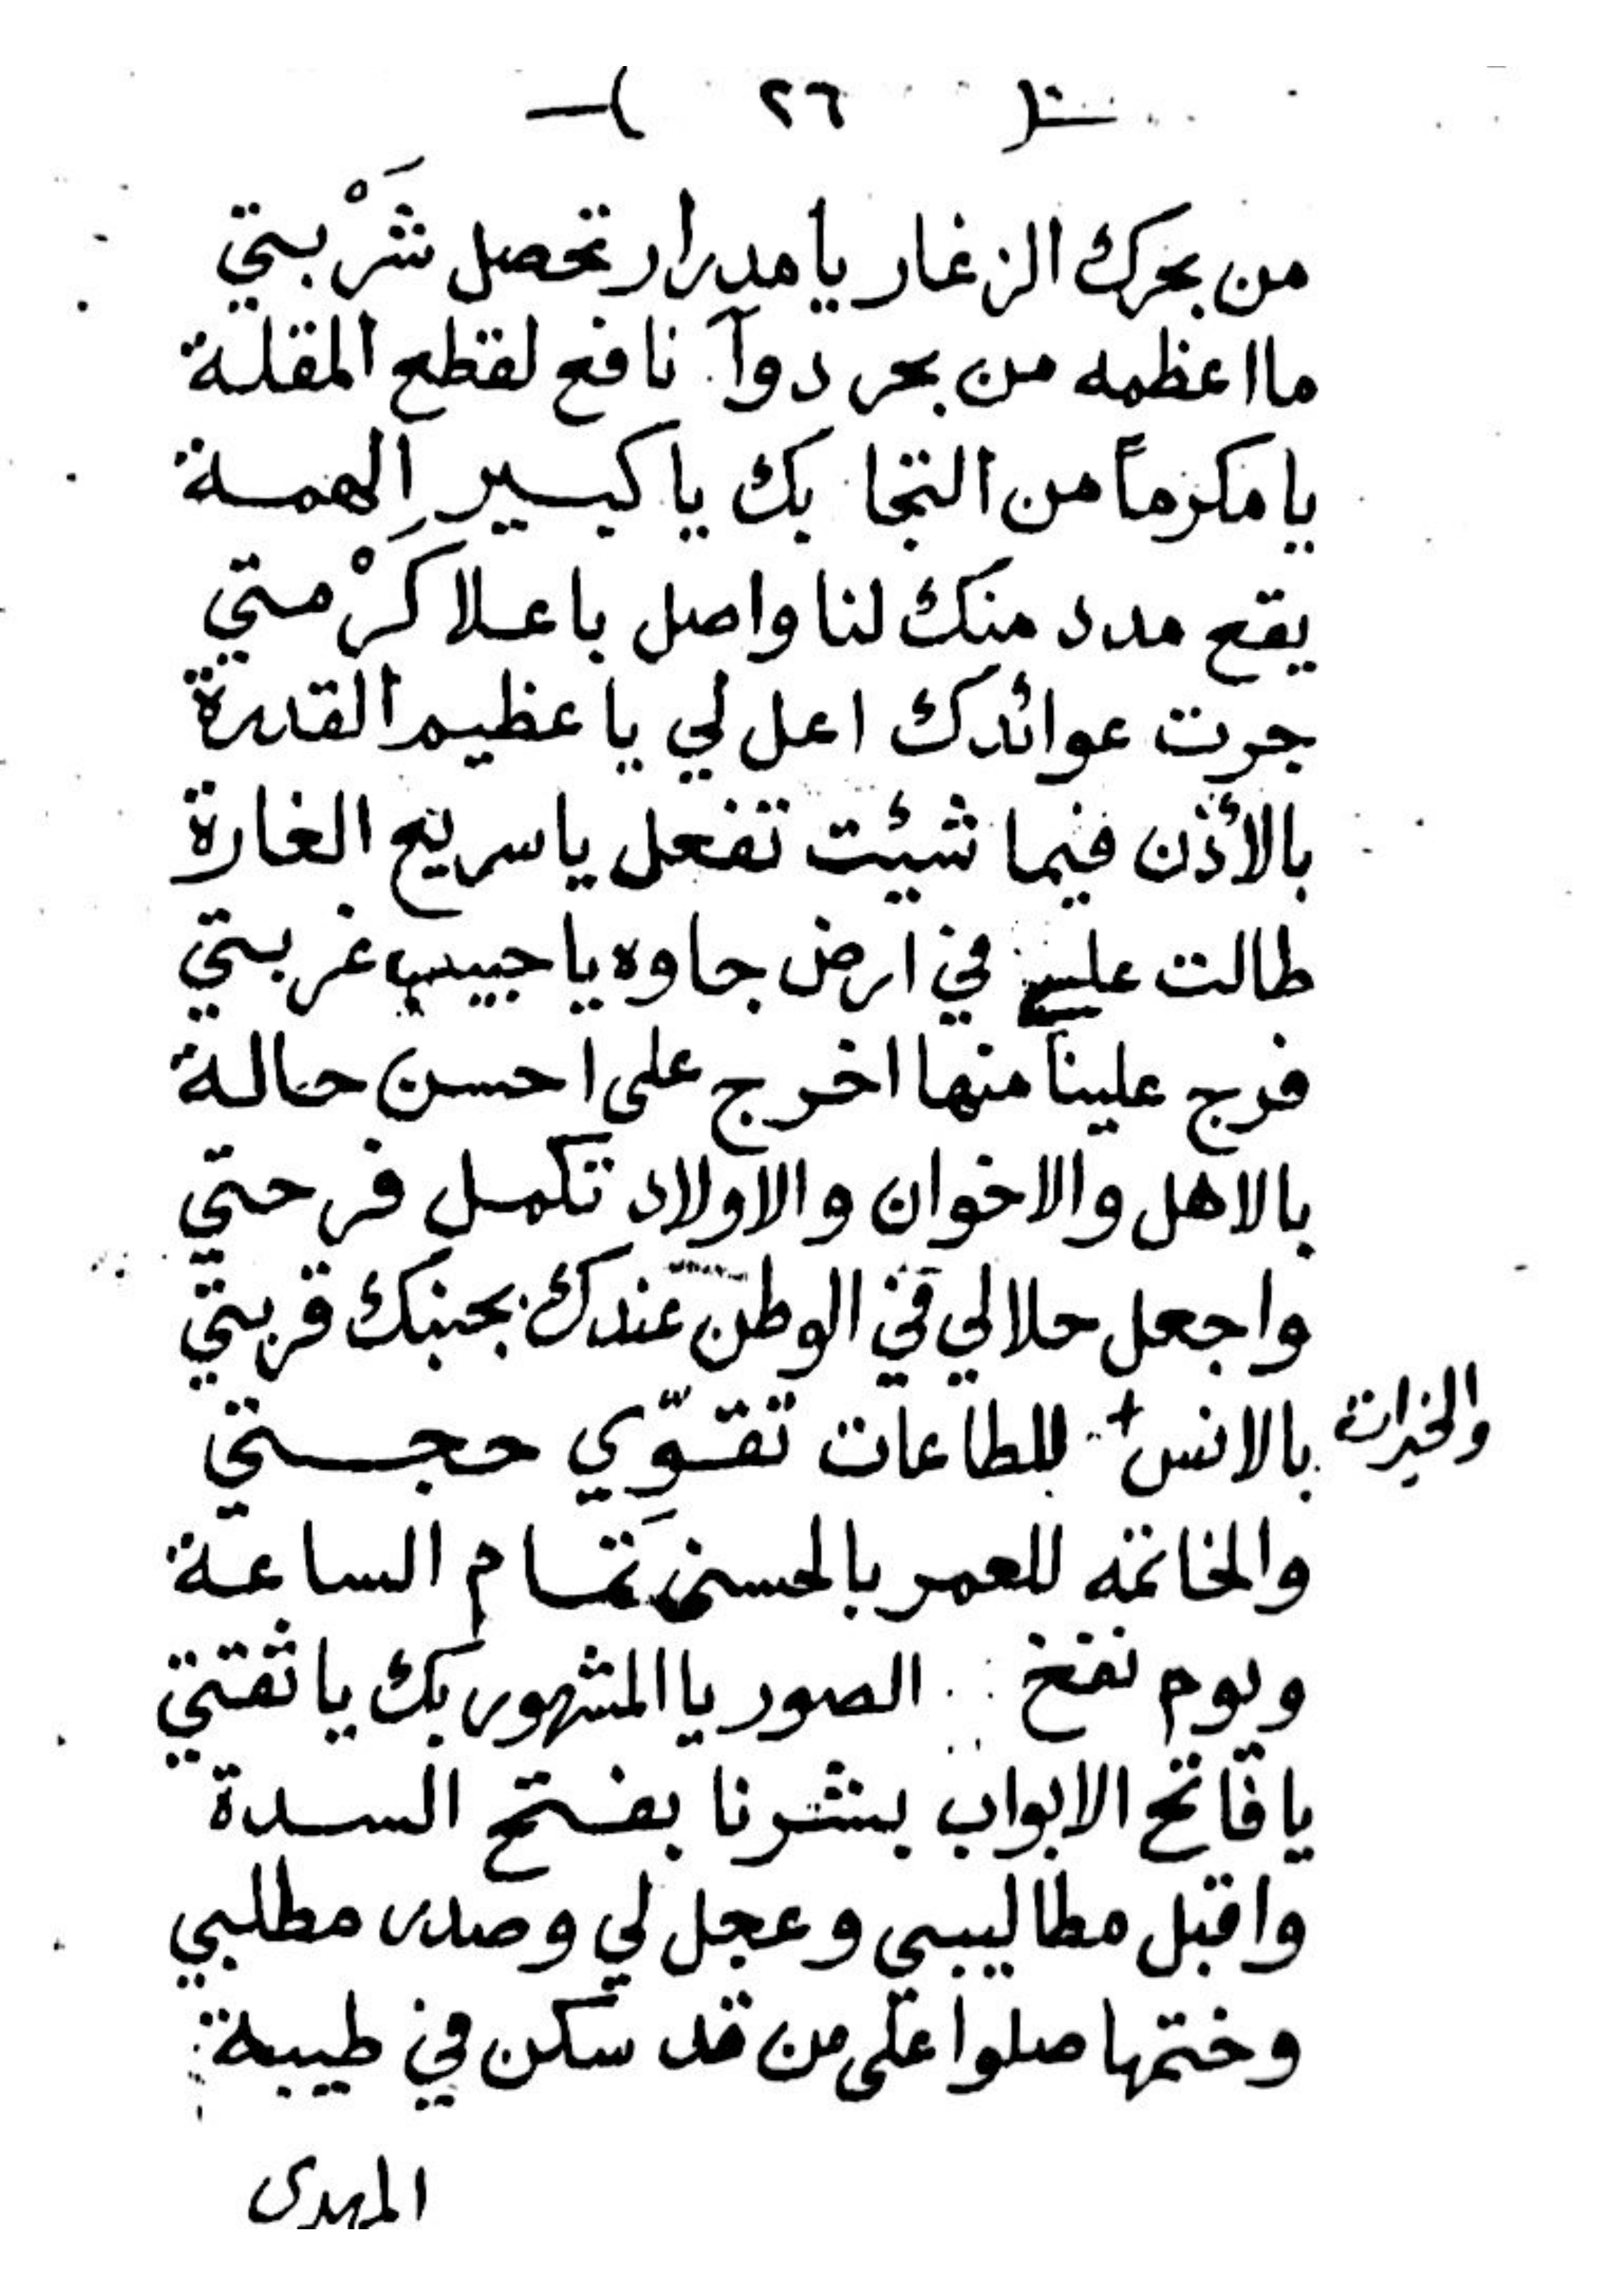 -( ٢٦ )-
من بحرك الزغار يا مدرار تحصل شَرْبتي
ما اعظمه من بحر دوآ نافع لقطع المقلة
يا مكرماً من التجا بك يا كبير الهمسة
يقع مدد منك لنا واصل با علا كَرْمتي
جرت عوائدك اعل لي يا عظيم القدرة
بالأذن فيما شئت تفعل يا سريع الغارة
طالت علي في ارض جاوه يا حبيب غربتي
فرج علينا منها اخرج على احسن حالة
بالاهل والاخوان والاولاد تكمل فرحتي
واجعل حلالي في الوطن عندك بجنبك قربتي
بالانس+ للطاعات تقوّي حجتي
والخيرات
والخاتمه للعمر بالحسنى تمام الساعة
ويوم نفخ الصور يا المشهور بك يا ثقتي
يا فاتح الابواب بشرنا بفتح السدة
واقبل مطاليبي وعجل لي وصدر مطلبي
وختمها صلوا على من قد سكن في طيبة
المهدى